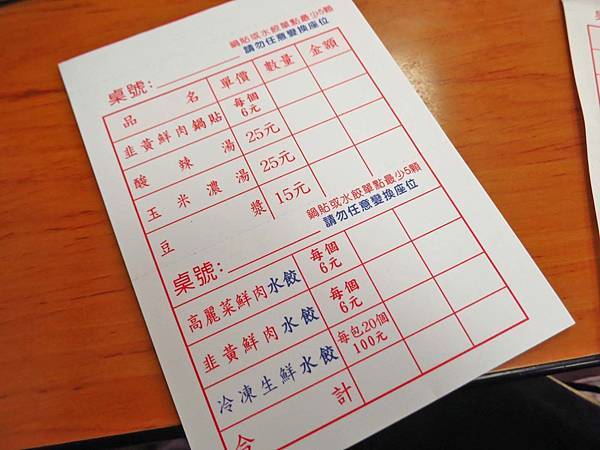 鍋貼或水餃單點最少5顆
桌號: 請勿任意變換座位
品名 單價 數量 金額
韭黃鮮肉鍋貼 每個6元
酸辣湯 25元
玉米濃湯 25元
豆漿 15元
鍋貼或水餃單點最少5顆
桌號: 請勿任意變換座位
高麗菜鮮肉水餃 每個6元
韭黃鮮肉水餃 每個6元
冷凍生鮮水餃 每包20個100元
合計